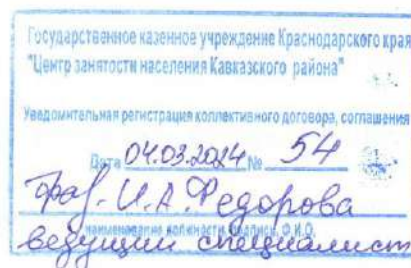 Государственное казенное учреждение Краснодарского края
"Центр занятости населения Кавказского района"
Уведомительная регистрация коллективного договора, соглашения
Дата 04.03.2024 № 54
И.А.Федорова
наименование должности, подпись, Ф.И.О.
ведущий специалист